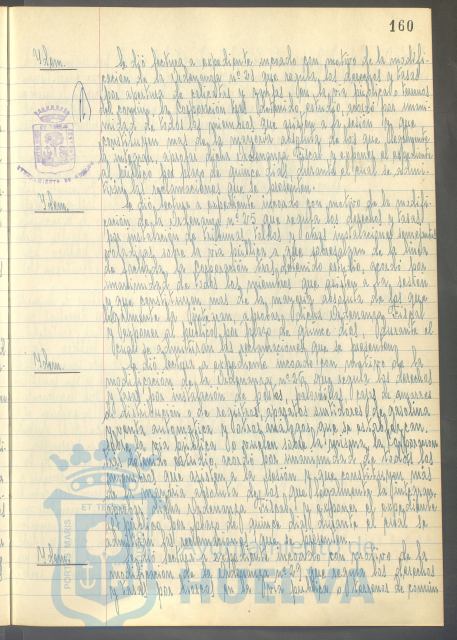 160
Idem.
Se dió lectura a expediente incoado con motivo de la modifi-
cacion de la Ordenanza nº 21 que regula los derechos y tasas
por apertura de calicatas y zanjas en la via pública o terrenos
del comun, la Corporación tras detenido estudio, acordó por unani-
midad de todos los miembros que asisten a la sesión y que
constituyen mas de la mayoría absoluta de los que legalmente
la integran, aprobar dicha Ordenanza Fiscal y exponer el expediente
al público por plazo de quince dias, durante el cual se admi-
tirán las reclamaciones que se presenten.
Idem.
Se dió lectura a expediente incoado con motivo de la modifi-
cación de la Ordenanza nº 25 que regula los derechos y tasas
por instalación de tribunas, toldos y otras instalaciones semejantes
voladizas sobre la via pública o que sobresalgan de la linea
de fachada, la Corporación tras detenido estudio, acordó por
unanimidad de todos los miembros que asisten a la sesión
y que constituyen mas de la mayoría absoluta de los que
legalmente la integran, aprobar dicha Ordenanza Fiscal
y exponer al público por plazo de quince dias, durante el
cual se admitirán las reclamaciones que se presenten.
Idem.
Se dió lectura a expediente incoado con motivo de la
modificacion de la Ordenanza nº 26 que regula los derechos
y tasas por instalación de postes, palomillas, cajas de amarre
de distribución o de registros, aparatos surtidores de gasolina
y venta automatica y otros análogos, que se establezcan
sobre la via pública o vuelen sobre la misma, la Corporacion
tras detenido estudio, acordó por unanimidad de todos los
miembros que asisten a la sesión y que constituyen más
de la mayoría absoluta de los que legalmente la integran,
aprobar dicha Ordenanza Fiscal y exponer el expediente
al público por plazo de quince dias durante el cual se
admitirán las reclamaciones que se presenten.
Idem.
Se dió lectura a expediente incoado con motivo de la
modificacion de la ordenanza nº 29 que regula los derechos
y tasas por kioscos en la via pública o terrenos de comun
PORTUS MARIS ET TE
HUELVA